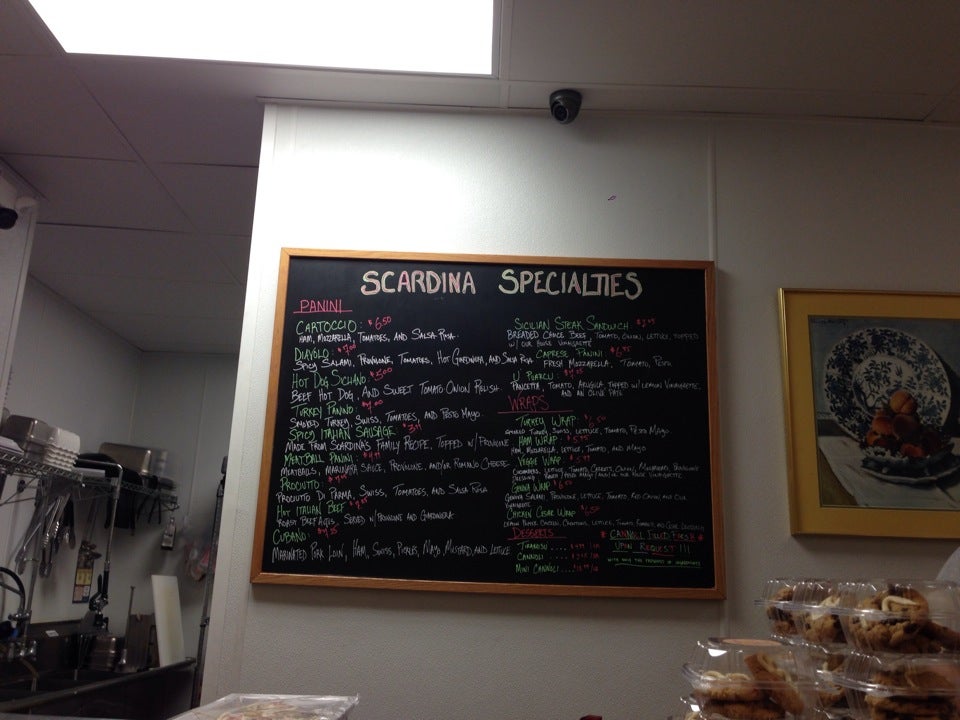 SCARDINA SPECIALTIES
PANINI
CARTOCCIO: $6.50
HAM, MOZZARELLA, TOMATOES, AND SALSA ROSA.
DIAVOLO: $7.00
SPICY SALAMI, PROVOLONE, TOMATOES, HOT GIARDINIERA, AND SALSA ROSA
HOT DOG SICILIANO: $5.00
BEEF HOT DOG, AND SWEET TOMATO-ONION RELISH.
TURKEY PANINO: $7.00
SMOKED TURKEY, SWISS, TOMATOES, AND PESTO MAYO.
SPICY ITALIAN SAUSAGE:
MADE FROM SCARDINA'S FAMILY RECIPE, TOPPED W/ PROVOLONE
MEATBALL PANINI:
MEATBALLS, MARINARA SAUCE, PROVOLONE, AND/OR ROMANO CHEESE
PROCIUTTO:
PROCIUTTO DI PARMA, SWISS, TOMATOES, AND SALSA ROSA
HOT ITALIAN BEEF
ROAST BEEF, SERVED W/ PROVOLONE AND GIARDINIERA
CUBANO:
MARINATED PORK LOIN, HAM, SWISS, PICKLES, MAYO, MUSTARD, AND LETTUCE
SICILIAN STEAK SANDWICH:
BREADED CHOICE BEEF, TOMATO, ONION, LETTUCE, TOPPED
W/ OUR HOUSE VINAIGRETTE
CAPRESE PANINI:
FRESH MOZZARELLA, TOMATO, PESTO
PANCETTA, TOMATO, ARUGULA, TOPPED W/ LEMON VINAIGRETTE,
AND AN OLIVE PATE
WRAPS
TURKEY WRAP
SMOKED TURKEY, SWISS, LETTUCE, TOMATO, PESTO MAYO
HAM WRAP:
HAM, MOZZARELLA, LETTUCE, TOMATO, AND MAYO
VEGGIE WRAP
GENOA WRAP
GENOA SALAMI, PROVOLONE, LETTUCE, TOMATO, RED ONION AND OUR
VINAIGRETTE
CHICKEN CESAR WRAP
DESSERTS
TIRAMISU ....
CANNOLI ....
MINI CANNOLI ....
* CANNOLI FILLED FRESH *
UPON REQUEST!!!